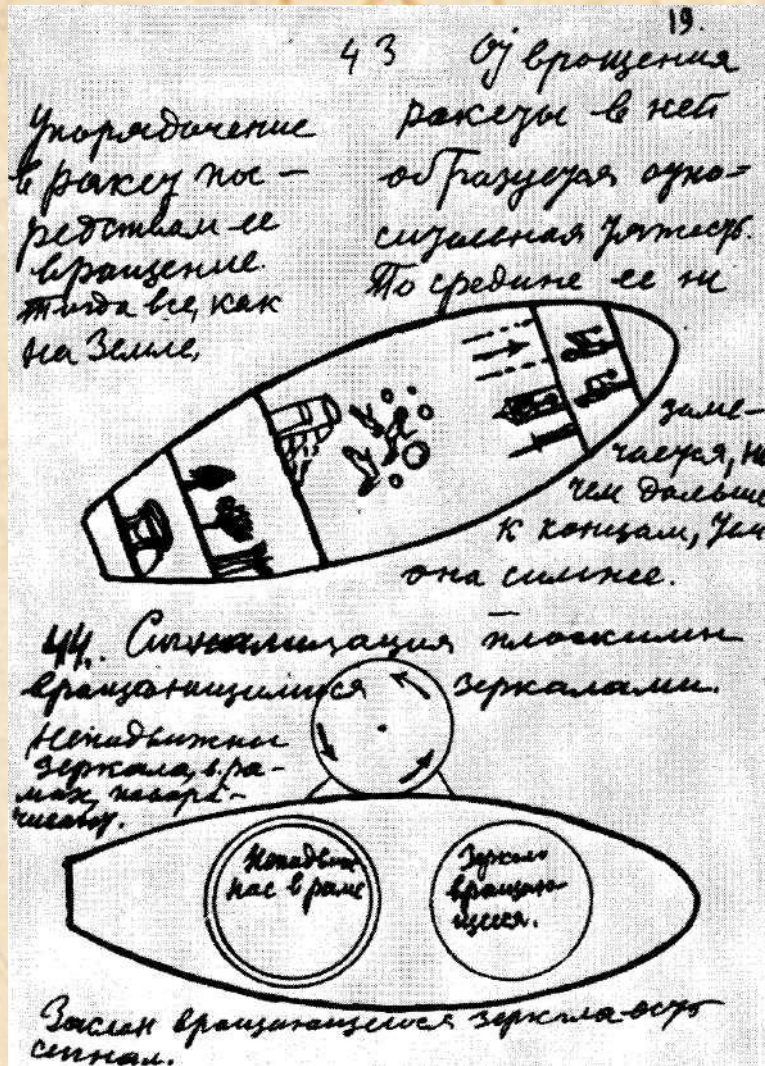 19.
43
Упорядочение
в ракету пос-
редствам ее
вращение.
Тогда все, как
на Земле,
От вращения
ракеты в ней
образуется
тяжесть.
По средине ее не
заме-
чается, но
чем дальше
к концам, тем
она сильнее.
44. Сигнализация плоскими
вращающимися зеркалами.
Неподвижны
зеркала, в ра-
мах, повора-
Неподвиж
ное в раме
Зеркало
вращаю-
щееся.
Заслон вращающегося зеркала есть
сигнал.